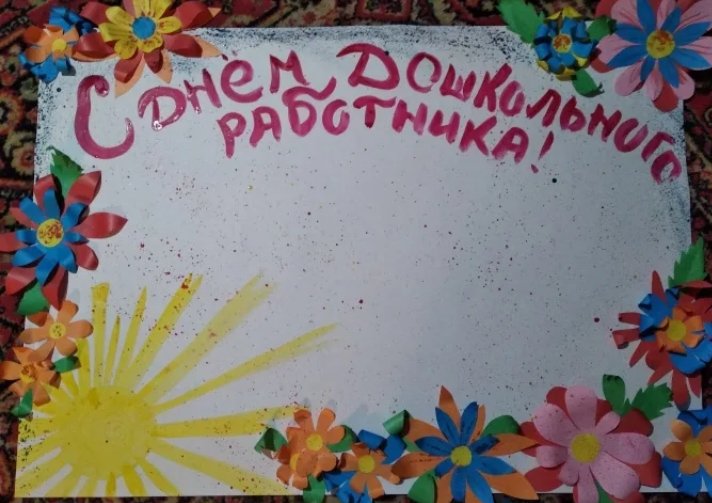 С днём дошкольного
работника!